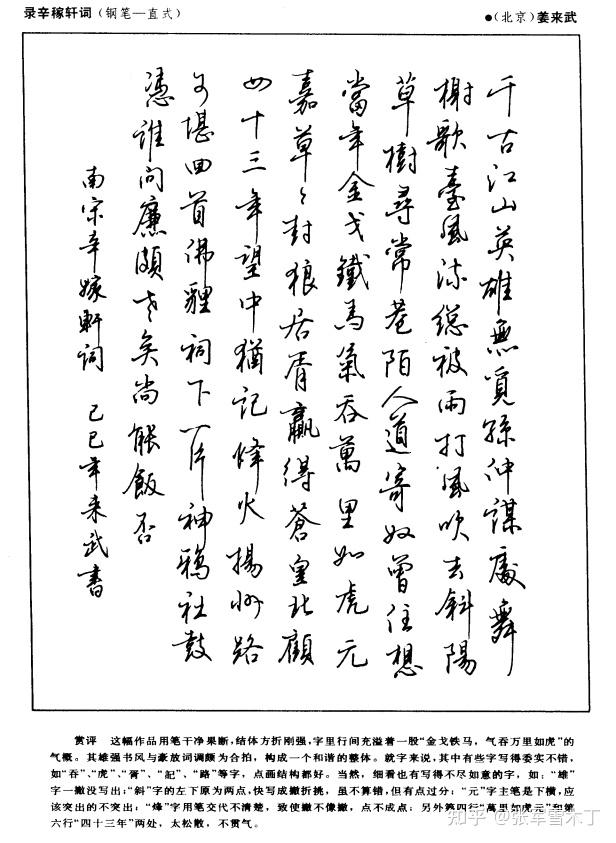 录辛稼轩词（钢笔—直式）
●（北京）姜来武
千古江山英雄無覓孫仲謀處舞
榭歌臺風流總被雨打風吹去斜陽
草樹尋常巷陌人道寄奴曾住想
當年金戈鐵馬氣吞萬里如虎元
嘉草々封狼居胥贏得蒼皇北顧
四十三年望中猶記烽火揚州路
可堪回首佛貍祠下一片神鴉社鼓
憑誰问廉頗老矣尚能飯否
南宋辛稼軒詞 己巳年来武書
赏评 这幅作品用笔干净果断，结体方折刚强，字里行间充溢着一股“金戈铁马，气吞万里如虎”的
气概。其雄强书风与豪放词调颇为合拍，构成一个和谐的整体。就字来说，其中有些字写得委实不错，
如“吞”、“虎”、“胥”、“記”、“路”等字，点画结构都好。当然，细看也有写得不尽如意的字，如：“雄”
字一撇没写出；“斜”字的左下原为两点，快写成撇折挑，虽不算错，但有点过分；“元”字主笔是下横，应
该突出的不突出；“烽”字用笔交代不清楚，致使撇不像撇，点不成点；另外第四行“萬里如虎元”和第
六行“四十三年”两处，太松散，不贯气。
知乎 @张军雪木丁